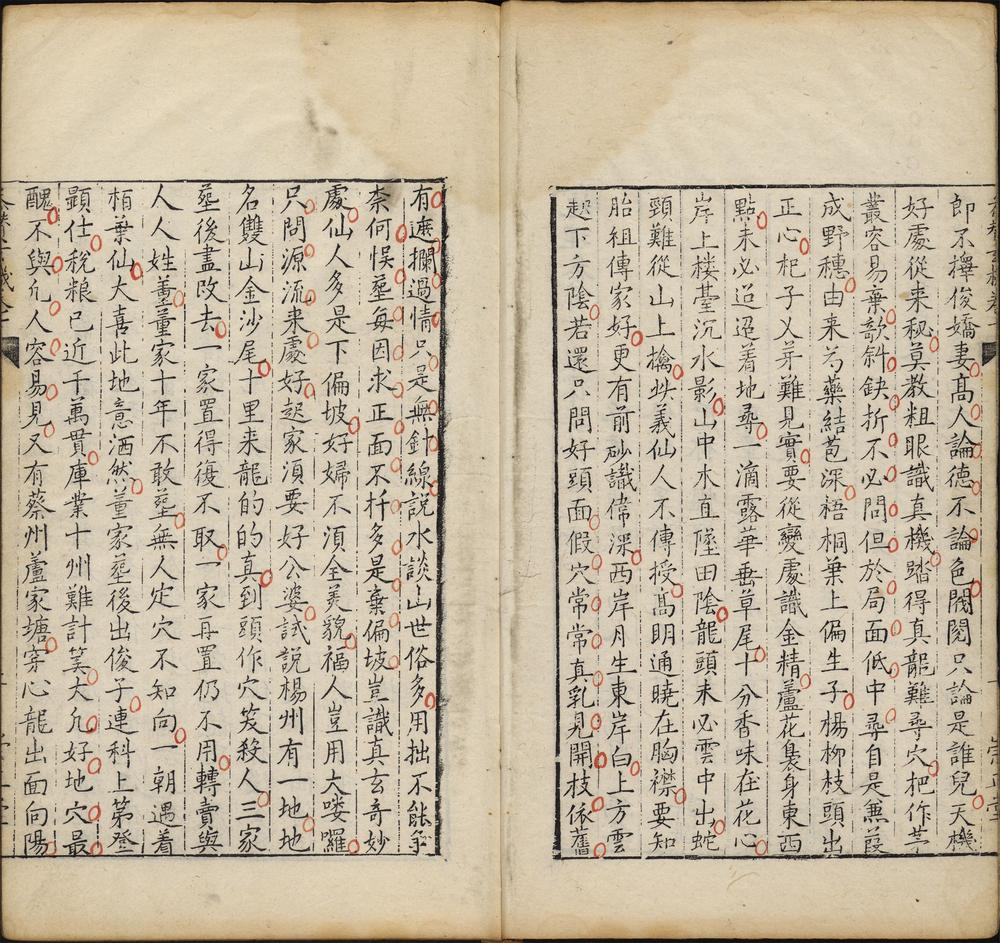 即不擇俊嬌妻髙人論德不論色閥閱只論是誰兒天機
好處從来秘莫教粗眼識真機踏得真龍難尋穴把作茅
叢容易棄欹斜缺折不必問但於局面低中尋自是蒹葭
成野穗由来芍藥結苞深梧桐葉上偏生子楊柳枝頭出
正心杞子乂芽難見實要從變處識金精蘆花裊身東西
點未必迢迢着地尋一滴露華垂草尾十分香味在花心
岸上楼臺沉水影山中木直墜田陰龍頭未必雲中出蛇
頸難從山上擒此義仙人不傳授髙明通曉在胸襟要知
胎祖傳家好更有前砂識倚深西岸月生東岸白上方雲
起下方陰若還只問好頭面假穴常常真乳見開枝依舊
有遮攔過情只是無針線說水談山世俗多用拙不能爭
柰何悮塟每因求正面不扦多是棄偏坡豈識真玄奇妙
處仙人多是下偏坡好婦不湏全美貌福人豈用大嘍囉
只問源流来處好起家湏要好公婆試說楊州有一地地
名雙山金沙尾十里来龍的的真到頭作穴笅殺人三家
塟後盡改去一家置得復不取一家再置仍不用轉賣與
人人姓董董家十年不敢塟無人定穴不知向一朝遇着
栢葉仙大喜此地意洒然董家塟後出俊子連科上第登
顯仕稅粮已近千萬貫庫業十州難計筭大凢好地穴最
醜不與凢人容易見又有蔡州蘆家塘穿心龍出面向陽